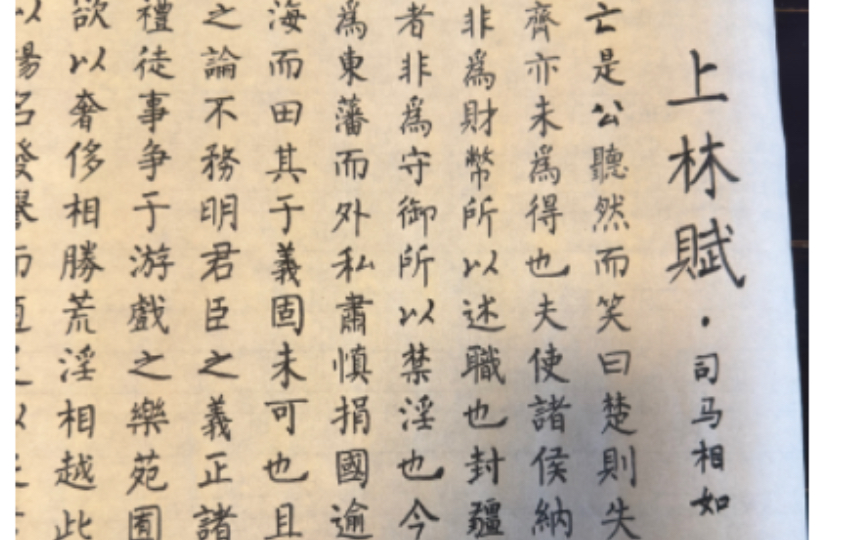 上林賦·司马相如
亡是公聽然而笑曰楚則失
齊亦未爲得也夫使諸侯納
非爲財幣所以述職也封疆
者非爲守御所以禁淫也今
爲東藩而外私肅慎捐國逾
海而田其于義固未可也且
之論不務明君臣之義正諸
禮徒事争于游戲之樂苑囿
欲以奢侈相勝荒淫相越此